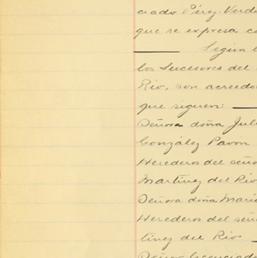 ciado Pérez Verd
que se expresa c
Segun
los Sucesores del
Rio, son acreed
que siguen:
Señora doña Jul
González Pavon
Herederos del seño
Martinez del Rio
Señora doña Marí
Herederos del señ
tinez del Rio
Señor Licenciado